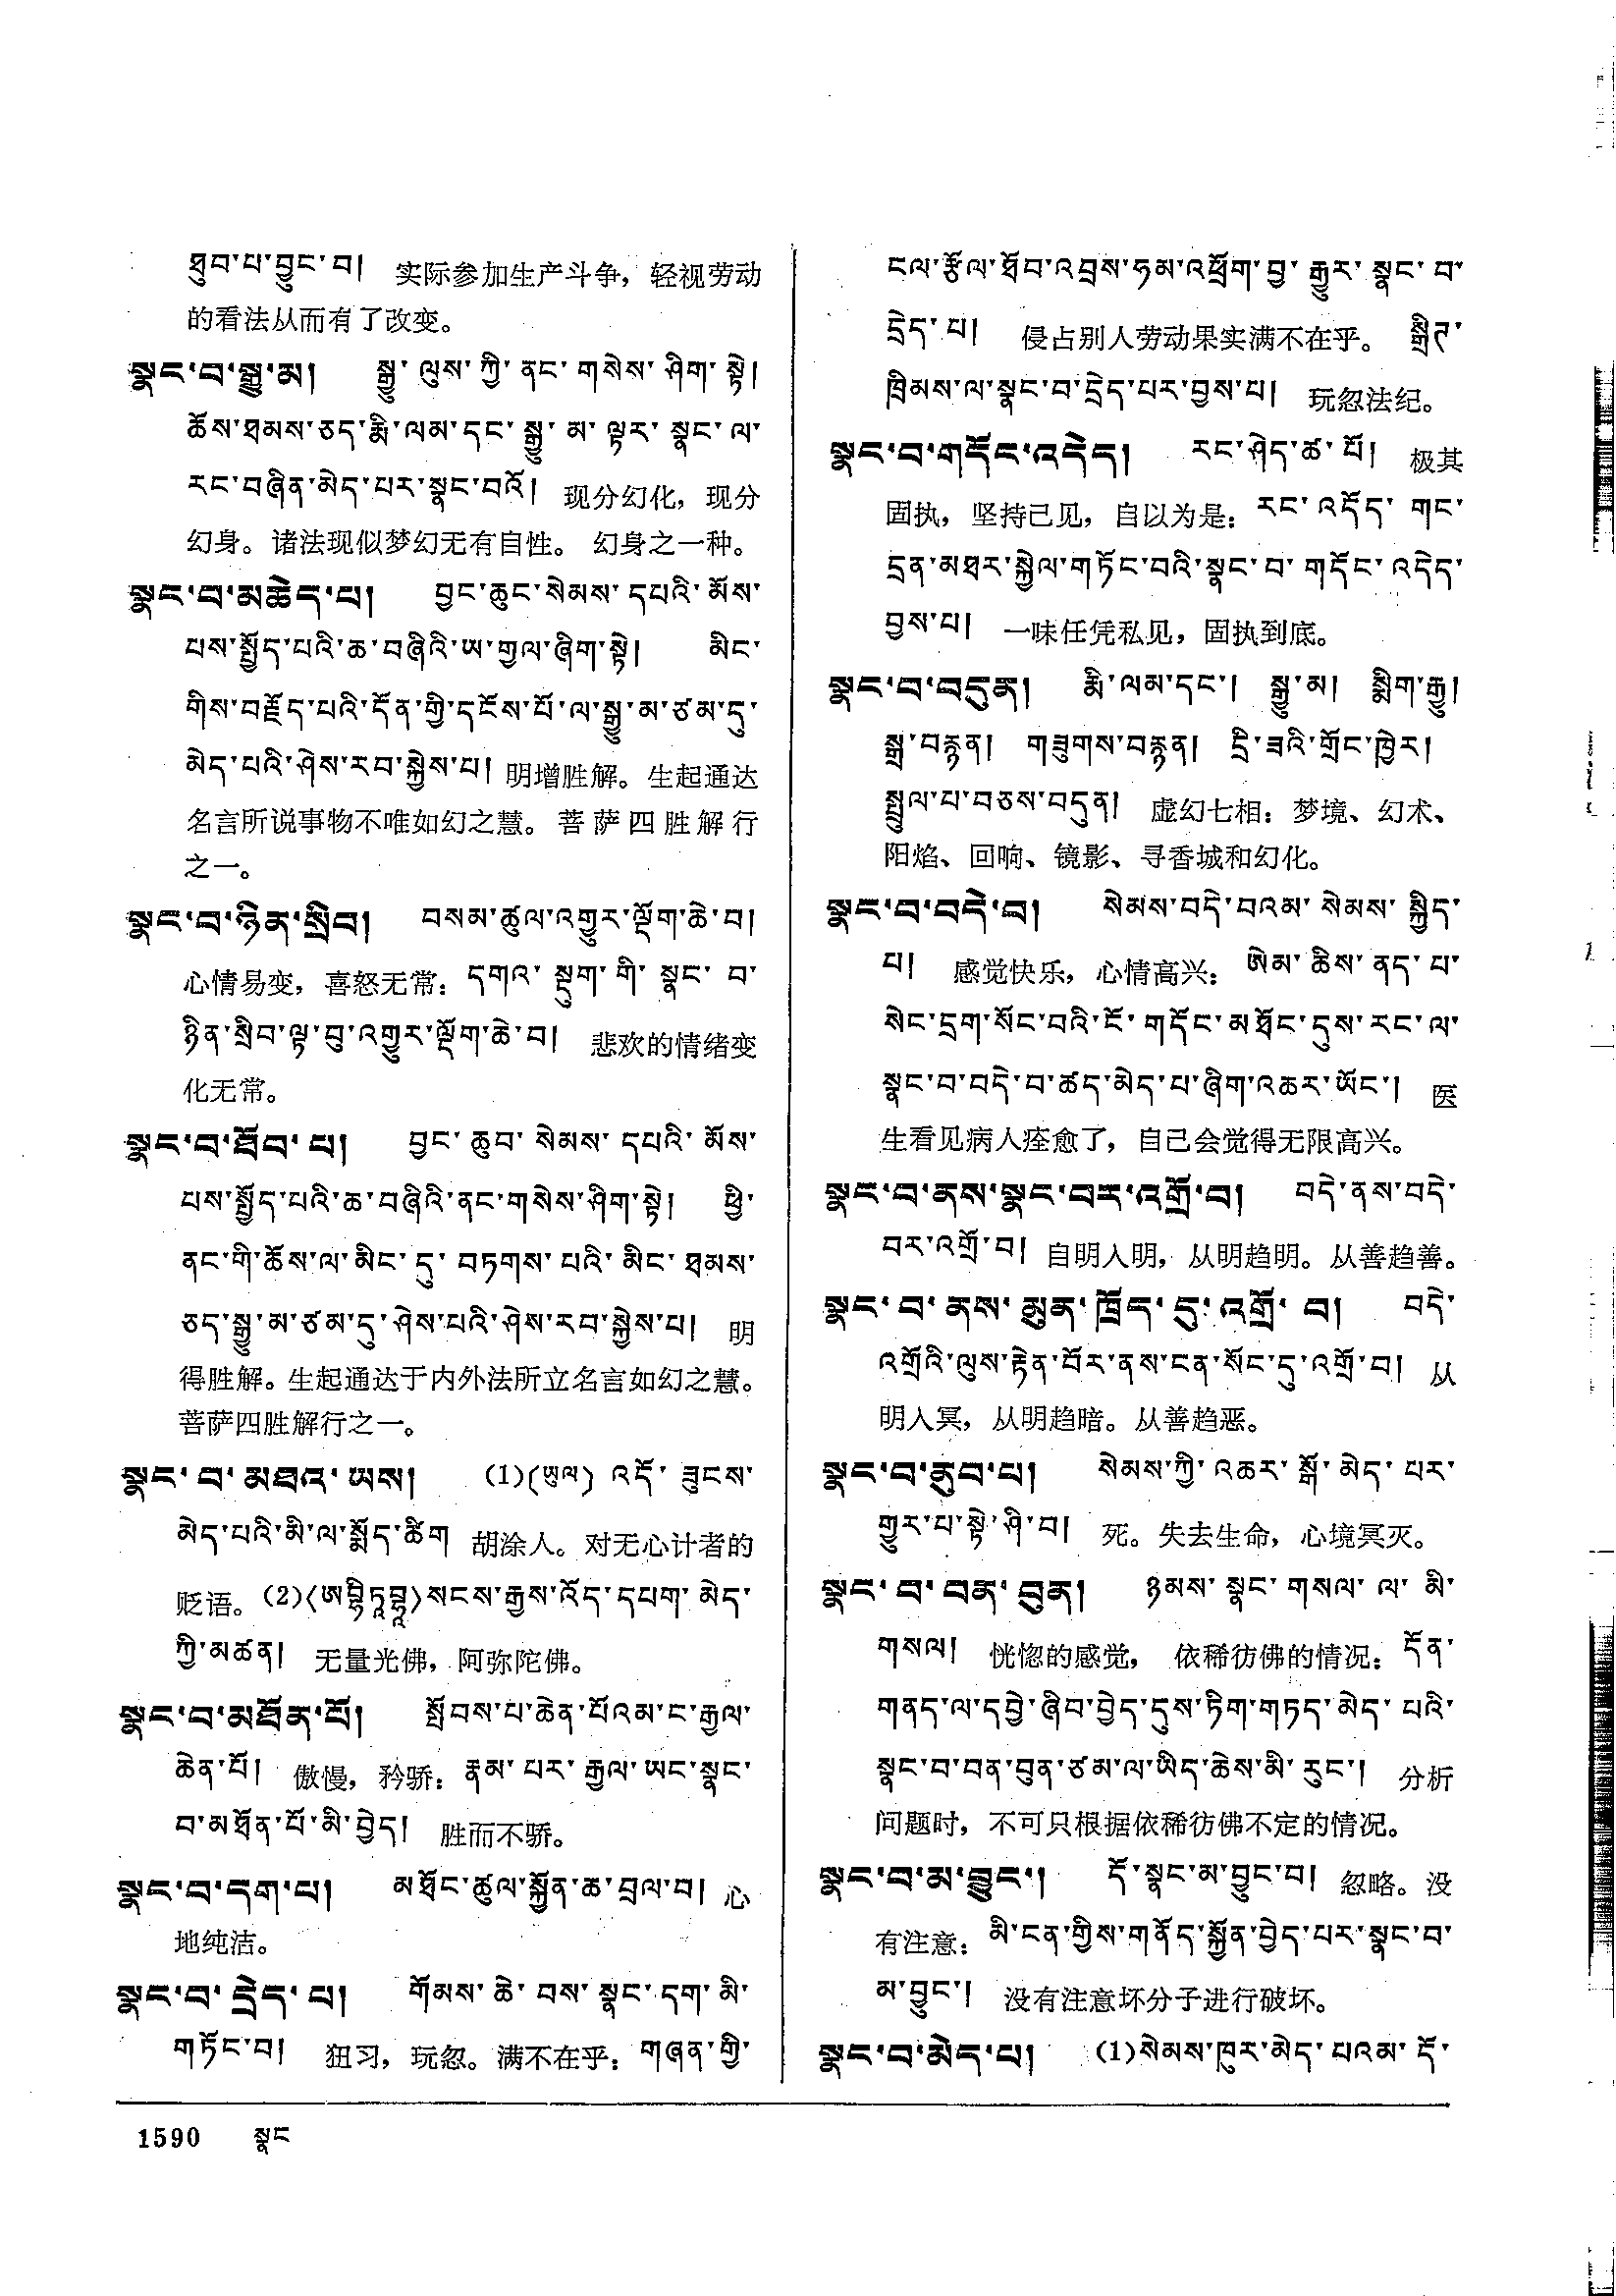 ཐུབ་པ་བྱུང་བ། 实际参加生产斗争，轻视劳动
的看法从而有了改变。
སྣང་བ་སྒྱུ་མ། སྒྱུ་ ལུས་ཀྱི་ ནང་ གསེས་ ཤིག་ སྟེ།
ཆོས་ཐམས་ཅད་རྨི་ལམ་དང་ སྒྱུ་ མ་ ལྟར་ སྣང་ ལ་
རང་བཞིན་མེད་པར་སྣང་བའོ། 现分幻化，现分
幻身。诸法现似梦幻无有自性。 幻身之一种。
སྣང་བ་མཆེད་པ། བྱང་ཆུང་སེམས་ དཔའི་ མོས་
པས་སྤྱོད་པའི་ཆ་བཞིའི་ཨ་གྱལ་ཞིག་སྟེ། མིང་
གིས་བརྗོད་པའི་དོན་གྱི་དངོས་པོ་ལ་སྒྱུ་མ་ཙམ་དུ་
མེད་པའི་ཤེས་རབ་སྐྱེས་པ། 明增胜解。生起通达
名言所说事物不唯如幻之慧。菩萨四胜解行
之一。
སྣང་བ་ཉིན་སྲིབ། བསམ་ཚུལ་འགྱུར་ལྡོག་ཆེ་བ།
心情易变，喜怒无常：དགའ་ སྡུག་ གི་ སྣང་ བ་
ཉིན་སྲིབ་ལྟ་བུ་འགྱུར་ལྡོག་ཆེ་བ། 悲欢的情绪变
化无常。
སྣང་བ་ཐོབ་ པ། བྱང་ ཆུབ་ སེམས་ དཔའི་ མོས་
པས་སྤྱོད་པའི་ཆ་བཞིའི་ནང་གསེས་ཤིག་སྟེ། ཕྱི་
ནང་གི་ཆོས་ལ་མིང་ དུ་ བཏགས་ པའི་ མིང་ ཐམས་
ཅད་སྒྱུ་མ་ཙམ་དུ་ཤེས་པའི་ཤེས་རབ་སྐྱེས་པ། 明
得胜解。生起通达于内外法所立名言如幻之慧。
菩萨四胜解行之一。
སྣང་ བ་ མཐའ་ ཡས། (1)(ཡུལ) འདོ་ ཟུངས་
མེད་པའི་མི་ལ་སྨོད་ཚིག 胡涂人。对无心计者的
贬语。(2)སངས་རྒྱས་འོད་དཔག་མེད་
ཀྱི་མཚན། 无量光佛，阿弥陀佛。
སྣང་བ་མཐོན་པོ། སྤོབས་པ་ཆེན་པོའམ་ང་རྒྱལ་
ཆེན་པོ། 傲慢，矜骄：རྣམ་ པར་ རྒྱལ་ཡང་སྣང་
བ་མཐོན་པོ་མི་བྱེད། 胜而不骄。
སྣང་བ་དག་པ། མཐོང་ཚུལ་སྐྱོན་ཆ་བྲལ་བ། 心
地纯洁。
སྣང་བ་ དྲེད་ པ། གོམས་ ཆེ་ བས་ སྣང་ དག་ མི་
གཏོང་བ། 狃习，玩忽。满不在乎：གཞན་གྱི་
ངལ་རྩོལ་ཐོབ་འབྲས་ཧམ་འཕྲོག་བྱ་ རྒྱུར་ སྣང་ བ་
དྲེད་པ། 侵占别人劳动果实满不在乎。 སྒྲིཊ་
ཁྲིམས་ལ་སྣང་བ་དྲེད་པར་བྱས་པ། 玩忽法纪。
སྣང་བ་གདོང་འདེད། རང་ཤེད་ཚ་ པོ། 极其
固执，坚持己见，自以为是：རང་ འདོད་ གང་
དྲན་མཐར་སྐྱེལ་གཏོང་བའི་སྣང་བ་ གདོང་ འདེད་
བྱས་པ། 一味任凭私见，固执到底。
སྣང་བ་བདུན། རྨི་ལམ་དང་། སྒྱུ་མ། སྨིག་རྒྱུ།
སྒྲ་བརྙན། གཟུགས་བརྙན། དྲི་ཟའི་གྲོང་ཁྱེར།
སྤྲུལ་པ་བཅས་བདུན། 虚幻七相：梦境、幻术、
阳焰、回响、镜影、寻香城和幻化。
སྣང་བ་བདེ་བ། སེམས་བདེ་བའམ་ སེམས་ སྐྱིད་
པ། 感觉快乐，心情高兴：ཨེམ་ ཆིས་ ནད་ པ་
སེང་དྲག་སོང་བའི་ངོ་ གདོང་མཐོང་དུས་རང་ལ་
སྣང་བ་བདེ་བ་ཚད་མེད་པ་ཞིག་འཆར་ཡོང་། 医
生看见病人痊愈了，自己会觉得无限高兴。
སྣང་བ་ནས་སྣང་བར་འགྲོ་བ། བདེ་ནས་བདེ་
བར་འགྲོ་བ། 自明入明，从明趋明。从善趋善。
སྣང་ བ་ ནས་ མུན་ ཁྲོད་ དུ་ འགྲོ་ བ། བདེ་
འགྲོའི་ལུས་རྟེན་བོར་ནས་ངན་སོང་དུ་འགྲོ་བ། 从
明入冥，从明趋暗。从善趋恶。
སྣང་བ་ནུབ་པ། སེམས་ཀྱི་ འཆར་ སྒོ་ མེད་ པར་
གྱུར་པ་སྟེ་ཤི་བ། 死。失去生命，心境冥灭。
སྣང་ བ་ བན་ བུན། ཉམས་ སྣང་ གསལ་ ལ་ མི་
གསལ། 恍惚的感觉， 依稀彷佛的情况：དོན་
གནད་ལ་དབྱེ་ཞིབ་བྱེད་དུས་ཏིག་གཏད་མེད་ པའི་
སྣང་བ་བན་བུན་ཙམ་ལ་ཡིད་ཆེས་མི་ རུང་། 分析
问题时，不可只根据依稀彷佛不定的情况。
སྣང་བ་མ་བྱུང་། དོ་སྣང་མ་བྱུང་བ། 忽略。没
有注意：མི་ངན་གྱིས་གནོད་སྐྱོན་བྱེད་པར་སྣང་བ་
མ་བྱུང་། 没有注意坏分子进行破坏。
སྣང་བ་མེད་པ། (1)སེམས་ཁུར་མེད་ པའམ་ དོ་
1590 སྣང